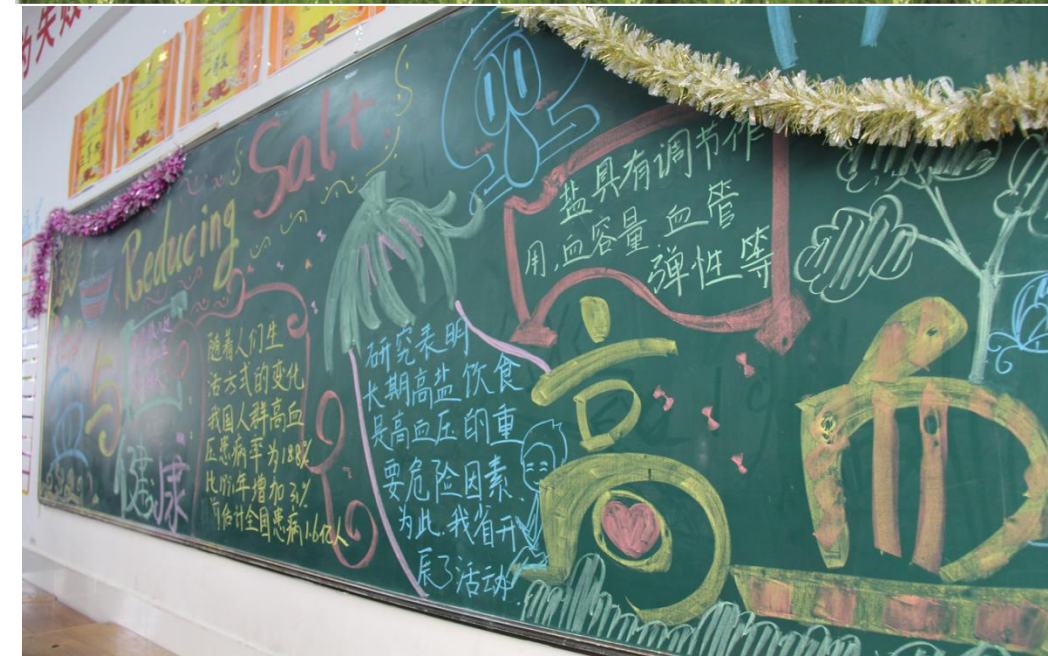 为失败
Reducing
Salt
与
健康
随着人们生
活方式的变化
我国人群高血
压患病率为18.8%
比91年增加31%
可估计全国患病1.6亿人
研究表明
长期高盐饮食
是高血压的重
要危险因素.
为此.我省开
展了活动.
盐具有调节作
用,血容量 血管
弹性等
高血